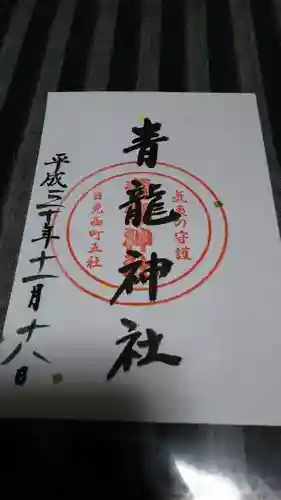 気象の守護
青龍神社
日光西町五社
平成三十年十一月十八日